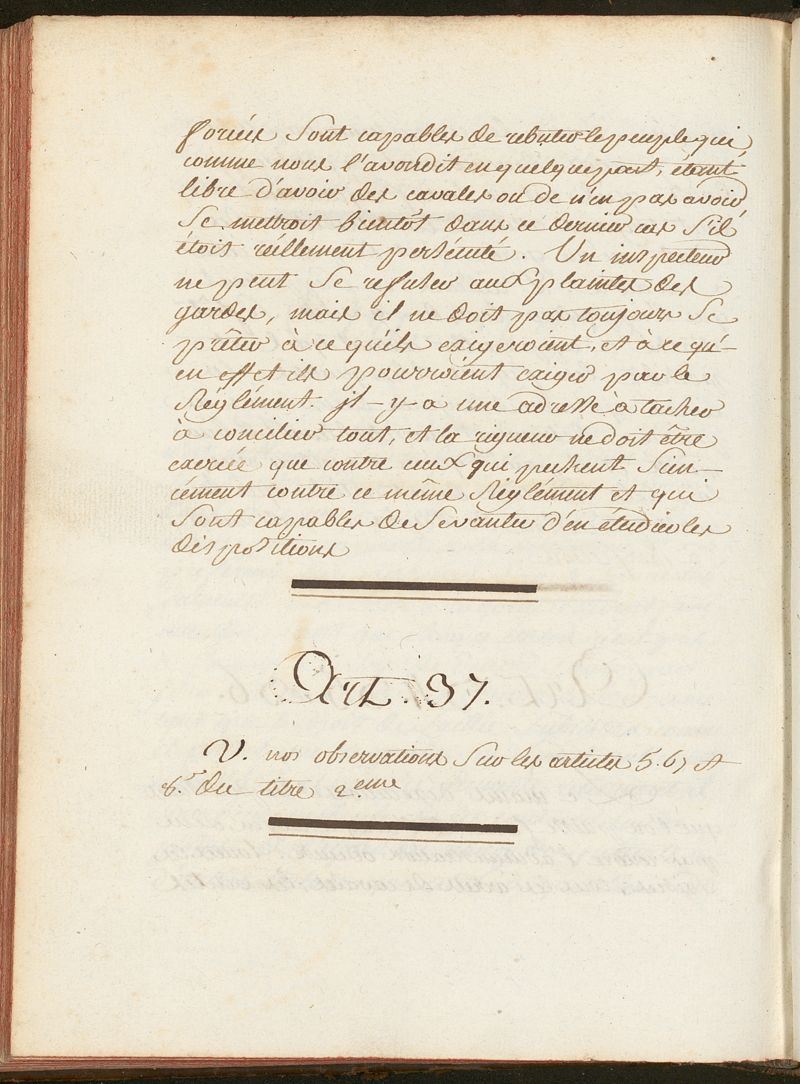 forcées sont capables de rebuter le peuple qui,
comme nous l'avons dit en quelque part, étant
libre d'avoir des cavales ou de n'en pas avoir
se mettroit bientôt dans ce dernier cas s'il
étoit réellement persécuté. Un inspecteur
ne peut se refuser aux plaintes des
gardes, mais il ne doit pas toujours se
prêter à ce qu'ils exigeroient, et à ce qu'-
en effet ils pourroient exiger par le
Réglément. jl-y-a une adresse à tacher
à concilier tout, et la rigueur ne doit être
exercée que contre ceux qui pechent sciem-
cément contre ce même Réglément et qui
sont capables de se vanter d'en étudier les
dispositions
Art. 37.
V. nos observations sur les articles 5. 6, et
8. du titre 2.eme